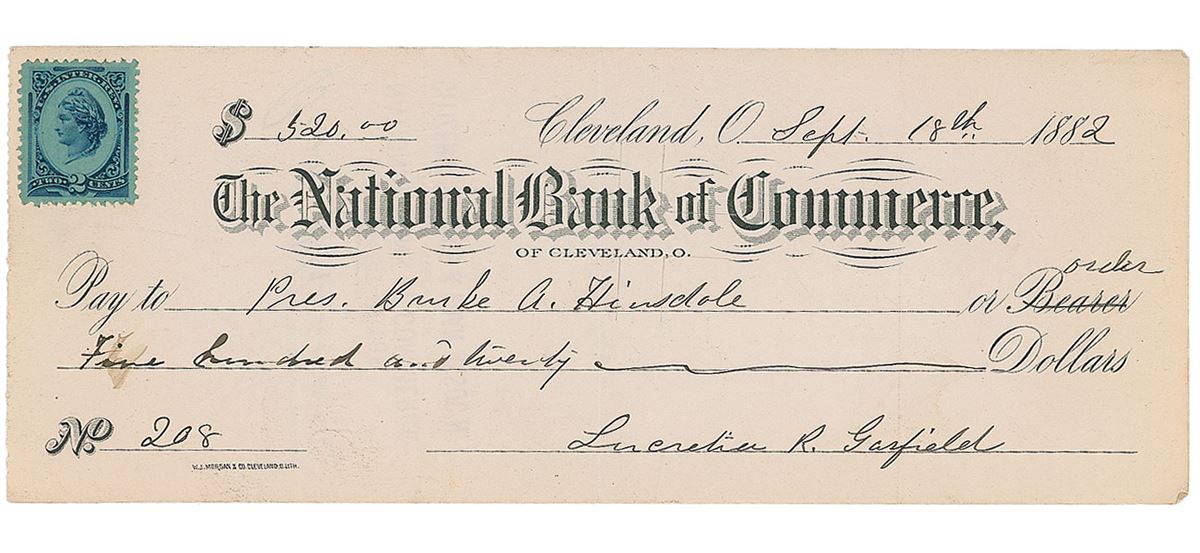 U.S. INTER. REV.
TWO 2 CENTS
$ 520.00 Cleveland, O. Sept. 18th 1882
The National Bank of Commerce,
OF CLEVELAND, O.
order
Pay to Pres. Burke A. Hinsdale or Bearer
Five hundred and twenty Dollars
No 208 Lucretia R. Garfield
W.J. MORGAN & CO. CLEVELAND, O. LITH.